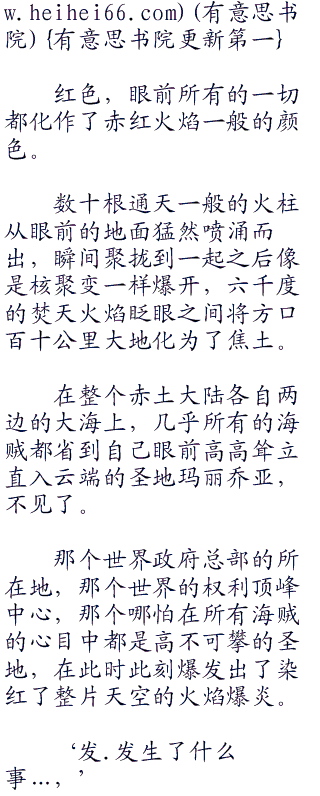 w.heihei66.com)(有意思书
院){有意思书院更新第一}
红色，眼前所有的一切
都化作了赤红火焰一般的颜
色。
数十根通天一般的火柱
从眼前的地面猛然喷涌而
出，瞬间聚拢到一起之后像
是核聚变一样爆开，六千度
的焚天火焰眨眼之间将方口
百十公里大地化为了焦土。
在整个赤土大陆各自两
边的大海上，几乎所有的海
贼都省到自己眼前高高耸立
直入云端的圣地玛丽乔亚，
不见了。
那个世界政府总部的所
在地，那个世界的权利顶峰
中心，那个哪怕在所有海贼
的心目中都是高不可攀的圣
地，在此时此刻爆发出了染
红了整片天空的火焰爆炎。
‘发.发生了什么
事…，’